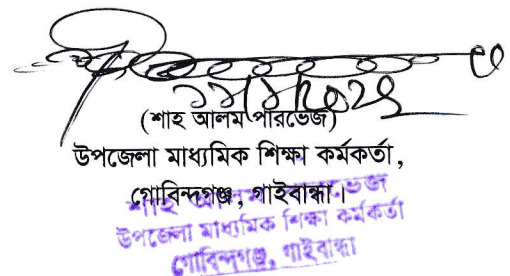 (শাহ আলম পারভেজ)
উপজেলা মাধ্যমিক শিক্ষা কর্মকর্তা,
গোবিন্দগঞ্জ, গাইবান্ধা।
শাহ আলম পারভেজ
উপজেলা মাধ্যমিক শিক্ষা কর্মকর্তা
গোবিন্দগঞ্জ, গাইবান্ধা